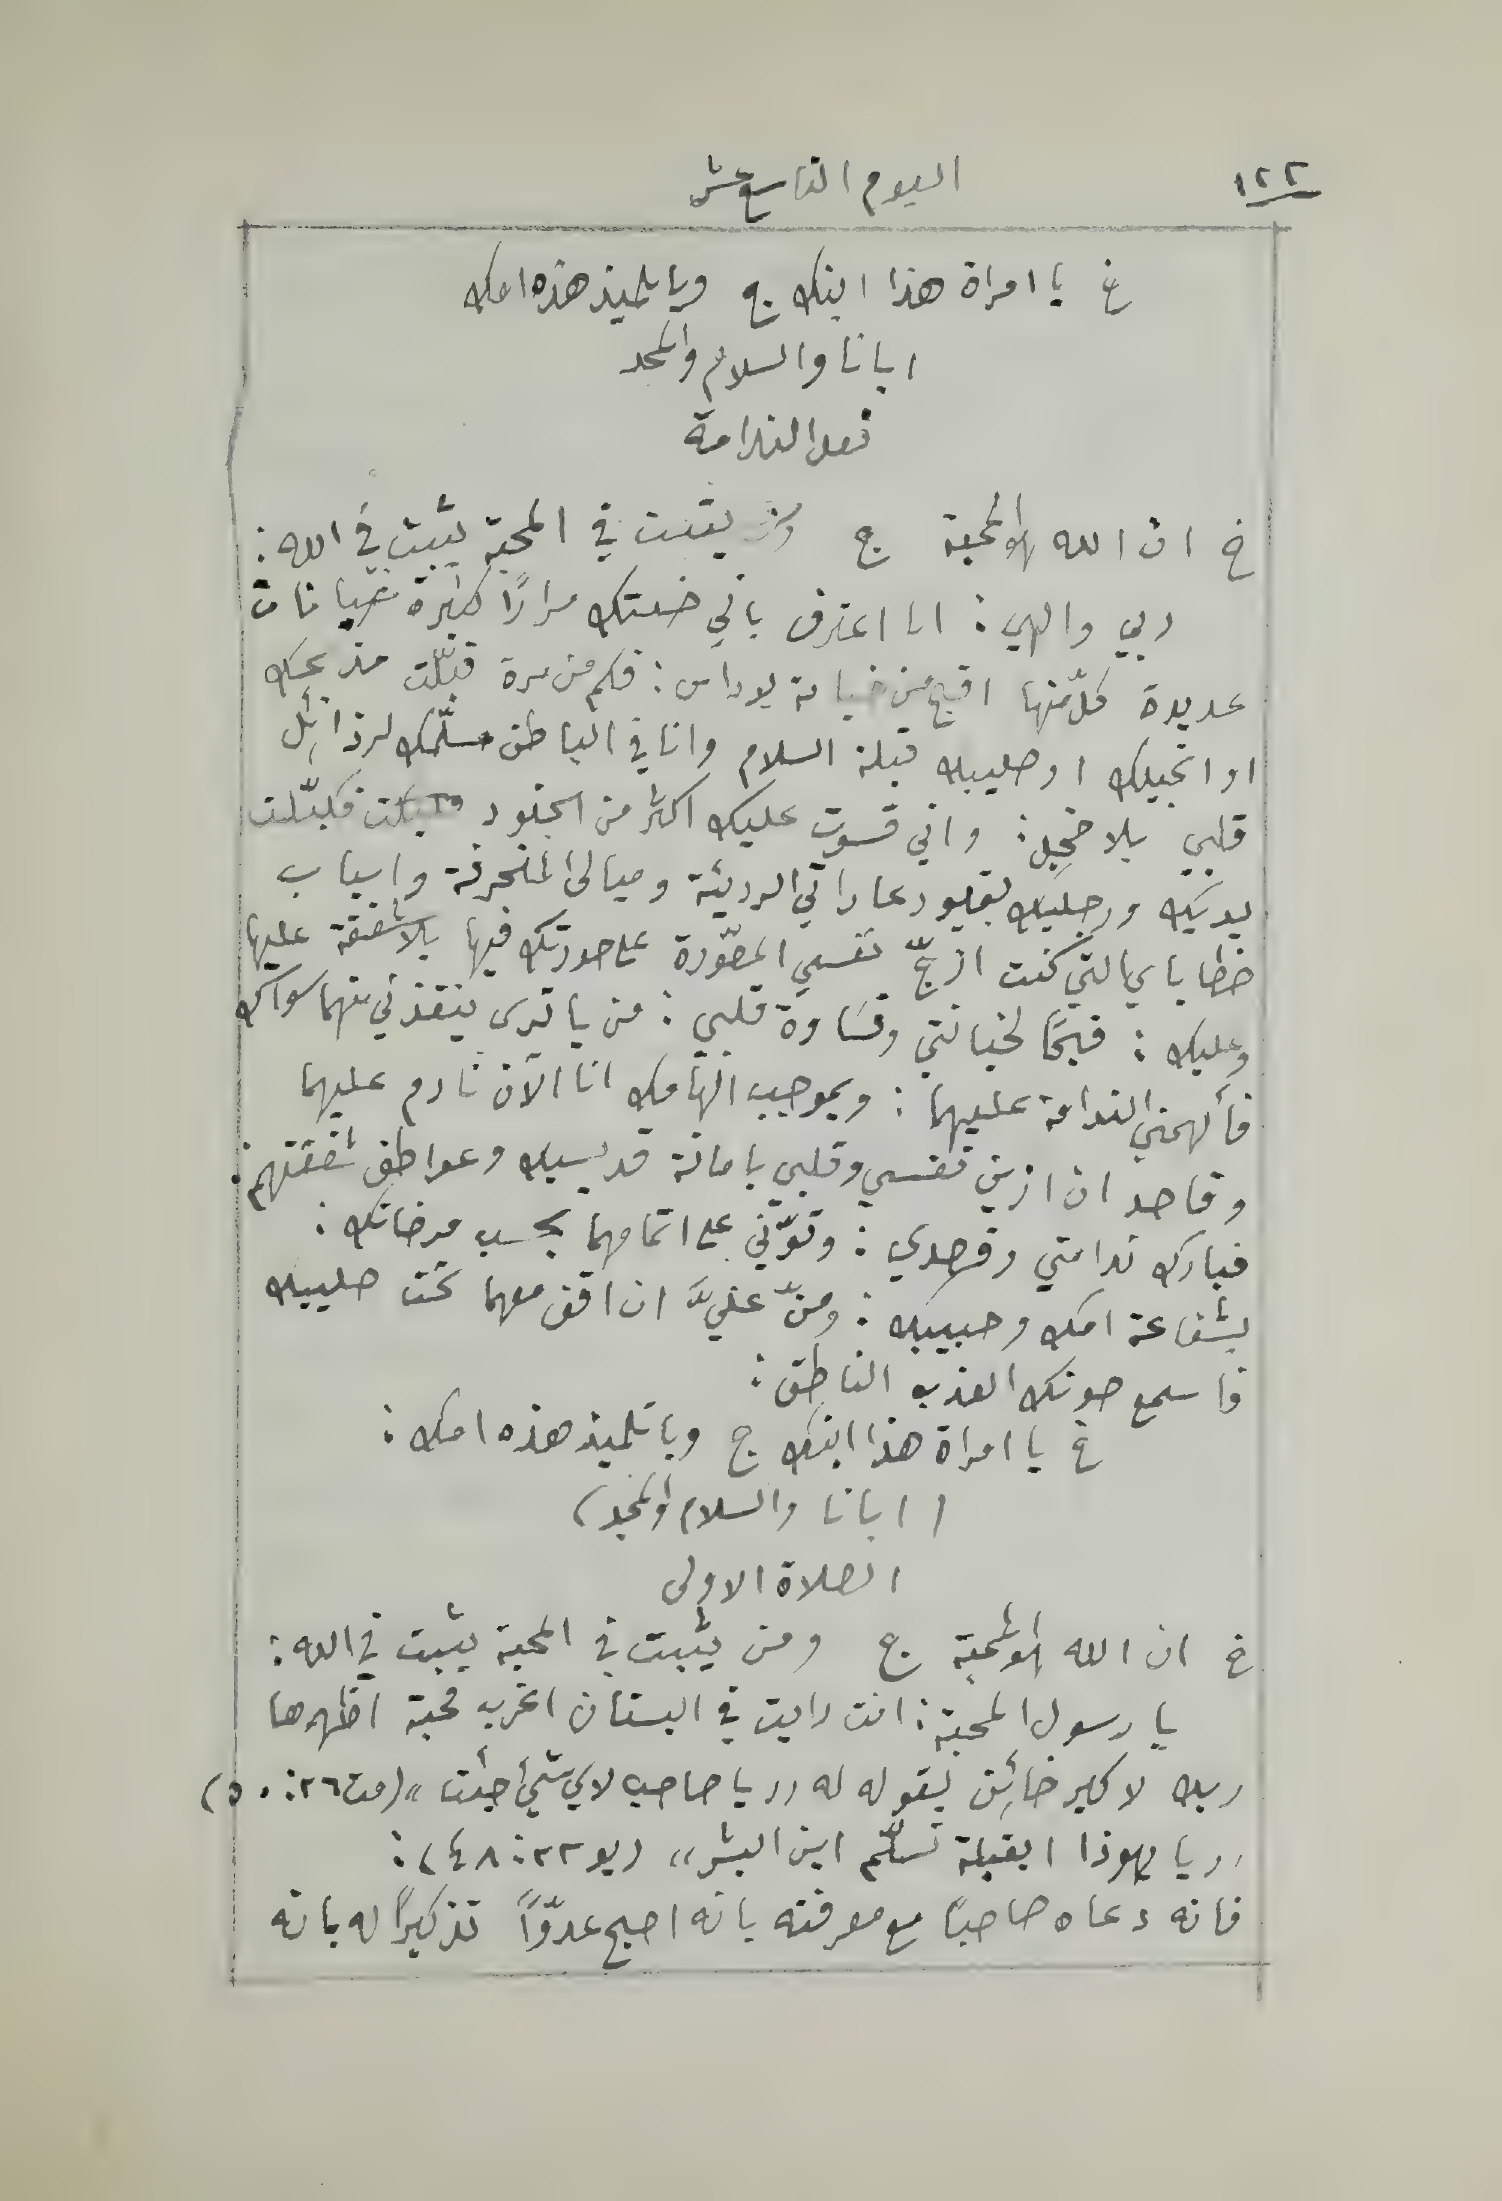 ١٢٢
اليوم التاسع عشر
خ يا امراة هذا ابنك ج ويا تلميذ هذه امك
ابانا والسلام والمجد
فعل الندامة
خ ان الله لهو المحبة ج ومن يثبت في المحبة يثبت في الله :
ربي والهي : انا اعترف باني خنتك مرارًا كثيرة خيانات
عديدة كلّ منها اقبح من خيانة يوداس : فكم من مرة قبّلت مذبحك
او انجيلك او صليبك قبلة السلام وانا في الباطن مسلّمك لرذائل
قلبي بلا خجل : واني قسوت عليك اكثر من الجنود فكبّلت
يديك ورجليك بقيود عاداتي الرديئة وميالي المنحرفة واسباب
خطاياي التي كنت ازجّ نفسي المصوّرة على صورتك فيها بلا شفقة عليها
وعليك : فبحًا لخيانتي وقساوة قلبي : من يا ترى ينقذني منهما سواك
فألهمني الندامة عليهما : وبموجب الهامك انا الآن نادم عليهما
وقاصد ان ازين نفسي وقلبي بامانة قديسيك وعواطف شفقتهم :
فبارك ندامتي وقصدي : وقوّني على اتمامهما بحسب مرضاتك :
بشفاعة امك وحبيبك : ومنّ عليَّ ان اقف معهما تحت صليبك
فاسمع صوتك العذب الناطق :
خ يا امراة هذا ابنك ج ويا تلميذ هذه امك :
( ابانا والسلام والمجد )
الصلاة الاولى
خ ان الله لهو المحبة ج ومن يثبت في المحبة يثبت في الله :
يا رسول المحبة : انت رايت في البستان اغرب محبة اظهرها
ربك لاكبر خائن بقوله له «يا صاحب لاي شيٍ أجئت» (مت ٢٦ : ٥٠)
«يا يهوذا ابقبلة تسلّم ابن البشر» (يو ٢٢ : ٤٨) :
فانه دعاه صاحبًا مع معرفته بانه اصبح عدوّاً تذكيرًا له بانه